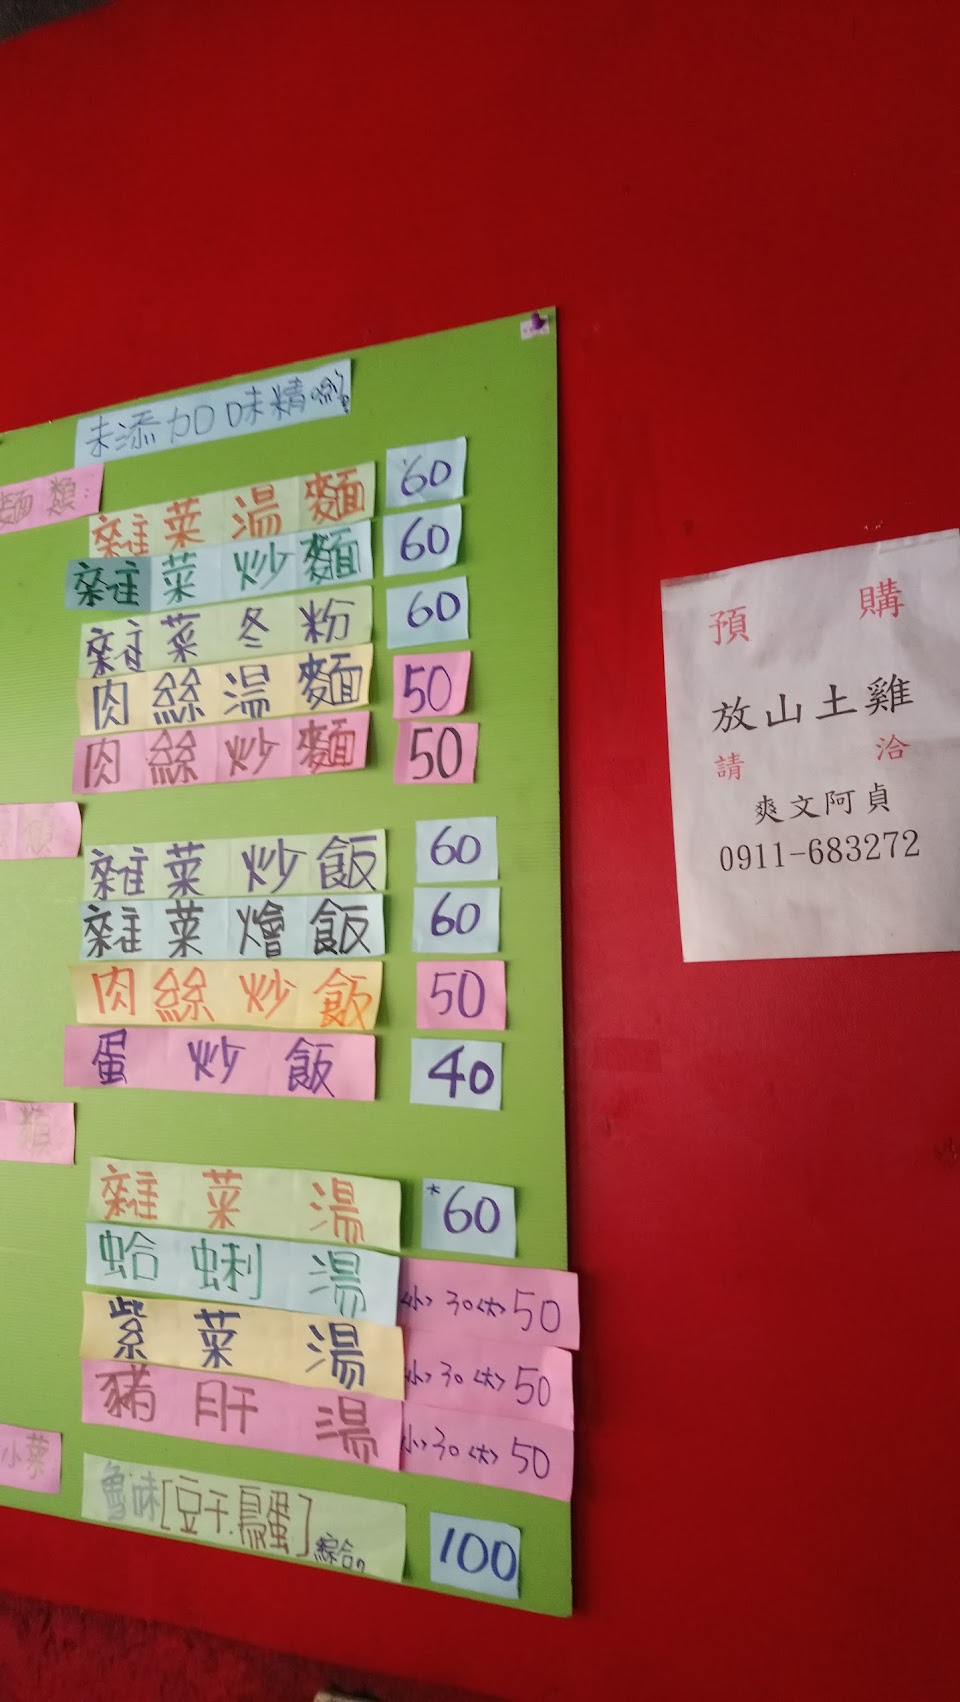 未添加味精喲
麵類:
雜菜湯麵 60
雜菜炒麵 60
雜菜冬粉 60
肉絲湯麵 50
肉絲炒麵 50
雜菜炒飯 60
雜菜燴飯 60
肉絲炒飯 50
蛋炒飯 40
類
雜菜湯 *60
蛤蜊湯 <小>30<大>50
紫菜湯 <小>30<大>50
豬肝湯 <小>30<大>50
小菜
魯味[豆干.鳥蛋]綜合。 100
預購
放山土雞
請洽
爽文阿貞
0911-683272